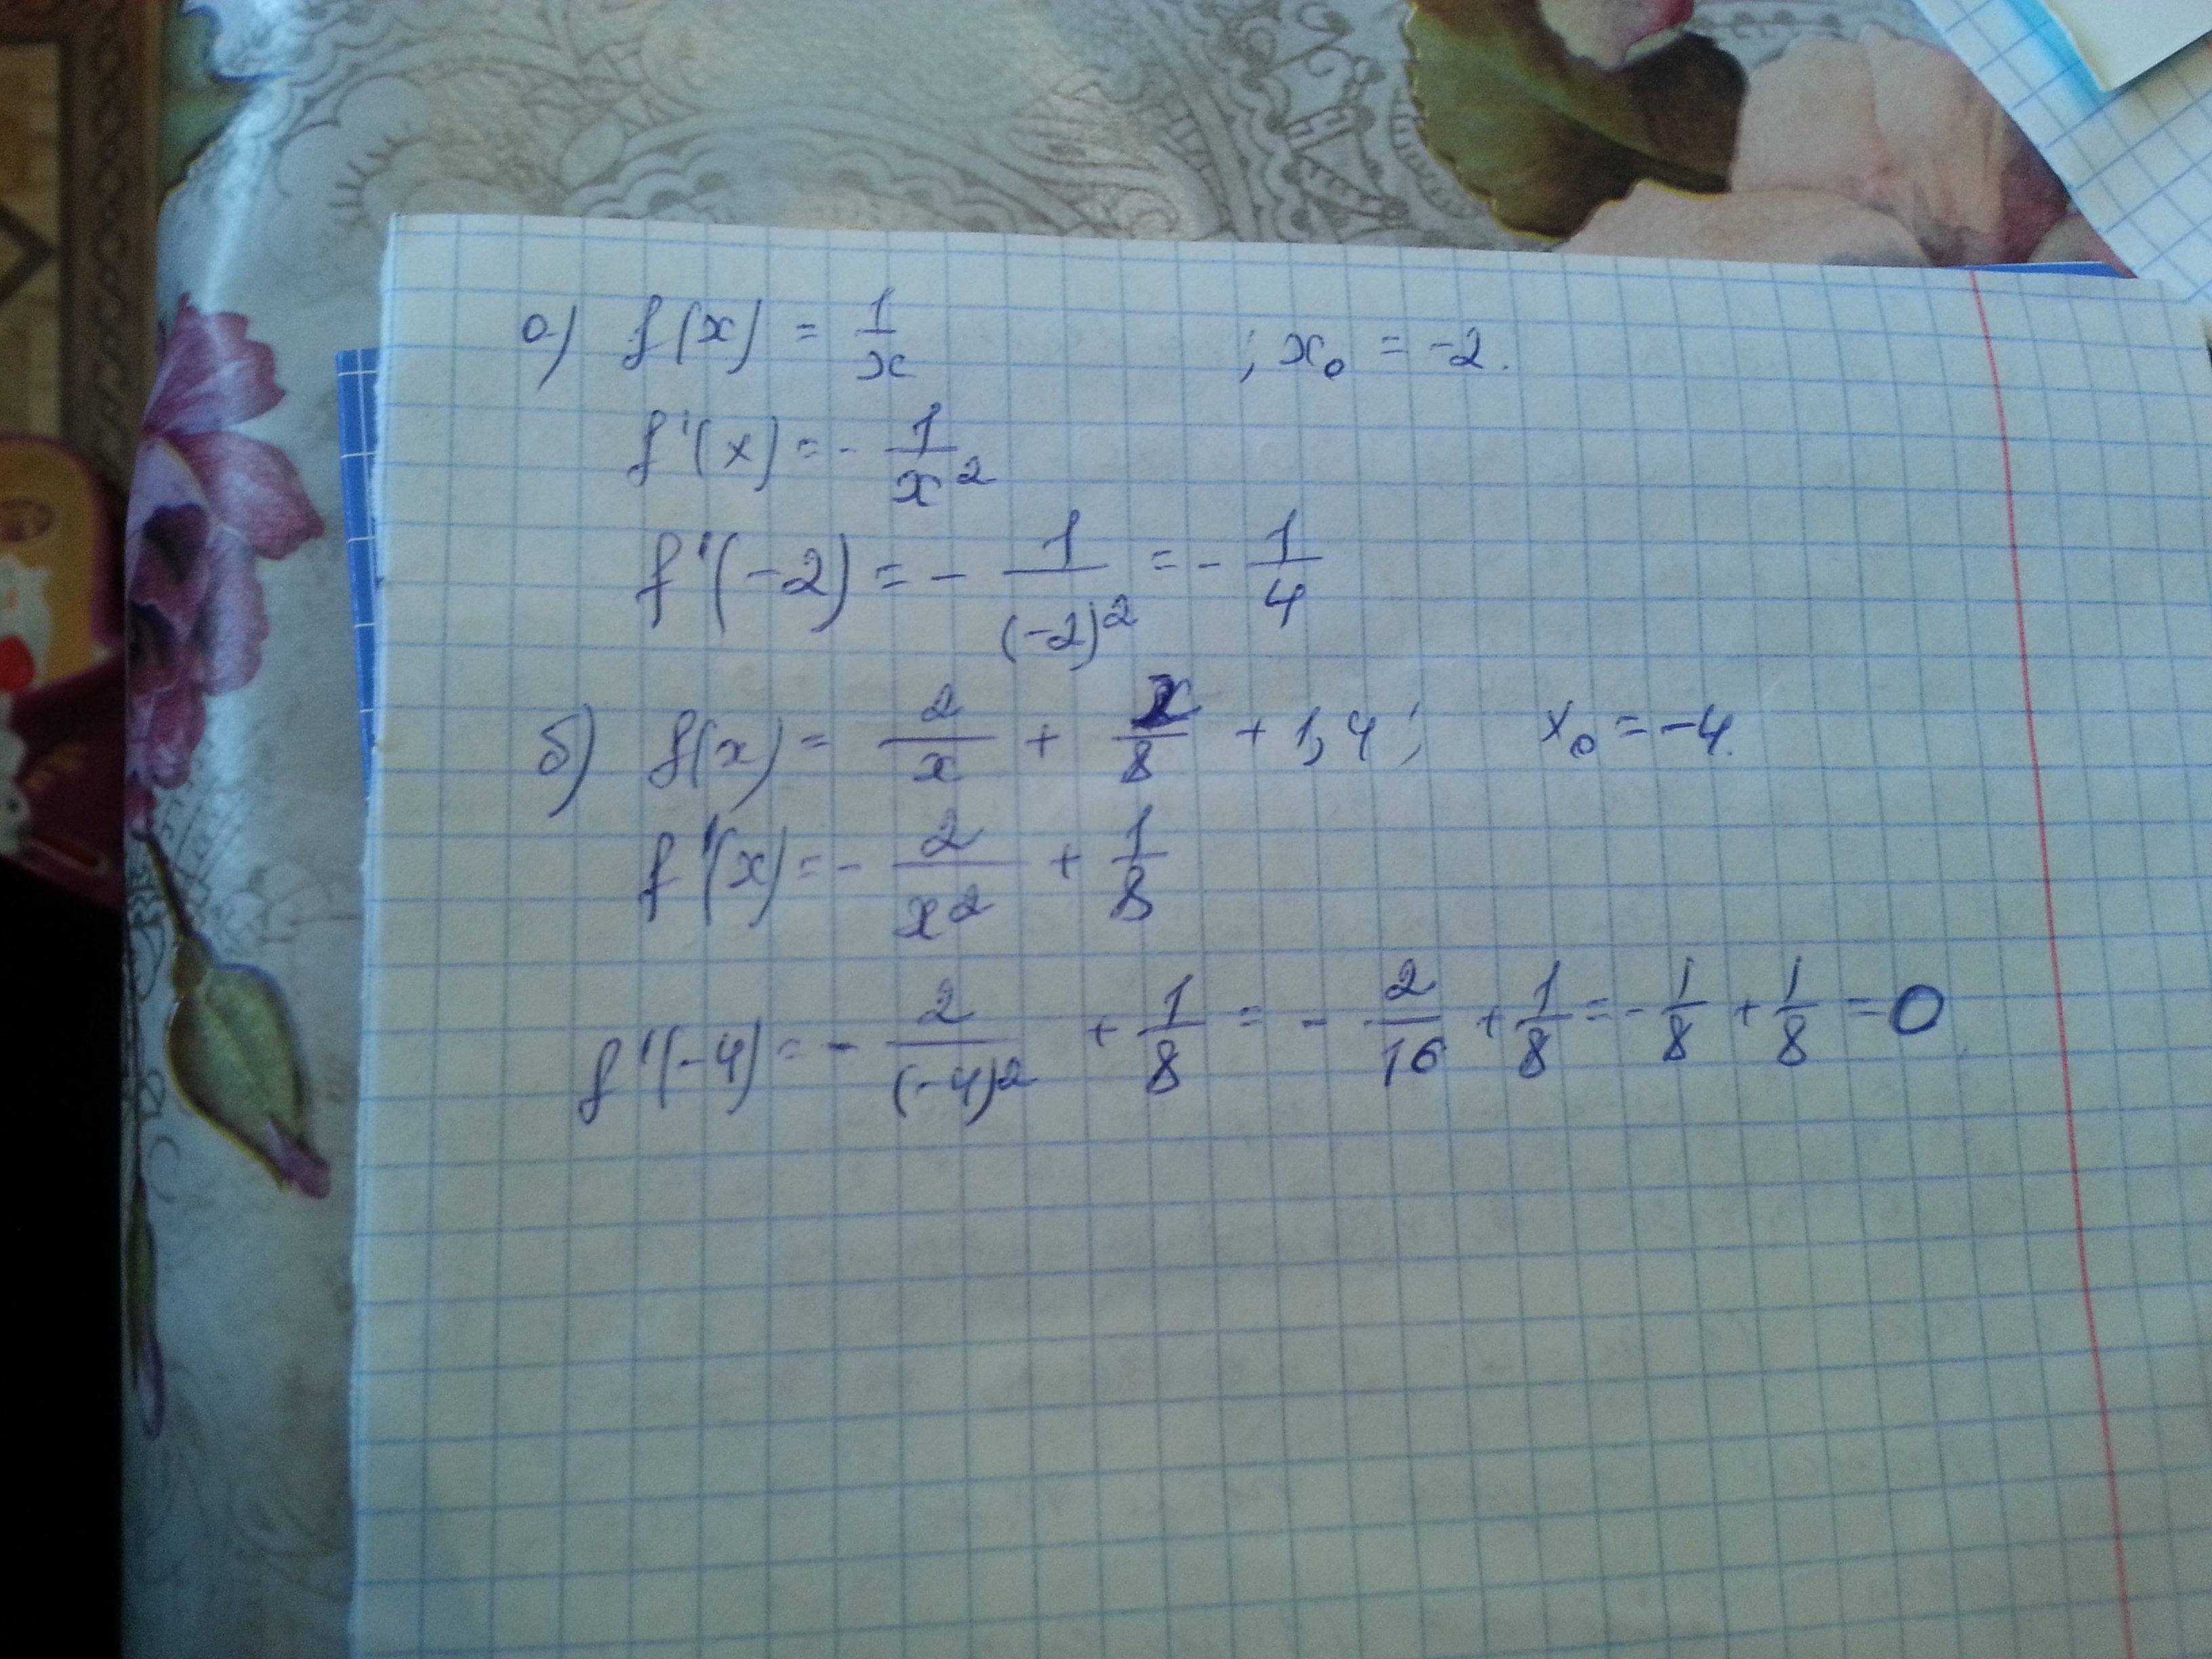 а) f(x) = 1/x ; x₀ = -2.
f'(x) = - 1/x²
f'(-2) = - 1/(-2)² = - 1/4
б) f(x) = 2/x + x/8 + 1,4 ; x₀ = -4.
f'(x) = - 2/x² + 1/8
f'(-4) = - 2/(-4)² + 1/8 = - 2/16 + 1/8 = - 1/8 + 1/8 = 0